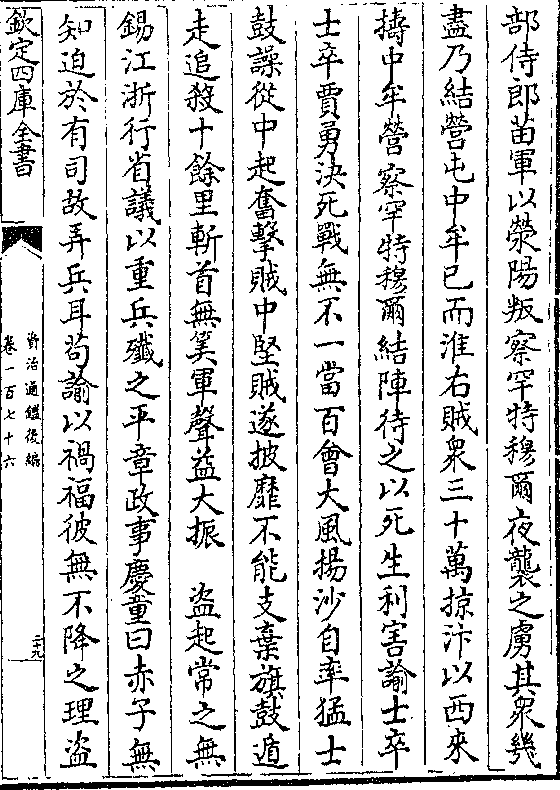 部侍郎苗軍以滎陽叛察罕特穆爾夜襲之虜其衆幾
盡乃結營屯中牟已而淮右賊衆三十萬掠汴以西來
擣中牟營察罕特穆爾結陣待之以死生利害諭士卒
士卒賈勇決死戰無不一當百會大風揚沙自率猛士
鼓譟從中起奮擊賊中堅賊遂披靡不能支棄旗鼓遁
走追殺十餘里斬首無算軍聲益大振　盜起常之無
錫江浙行省議以重兵殲之平章政事慶童曰赤子無
知迫於有司故弄兵耳苟諭以禍福彼無不降之理盜
欽定四庫全書
資治通鑑後編
卷一百七十六
二十九